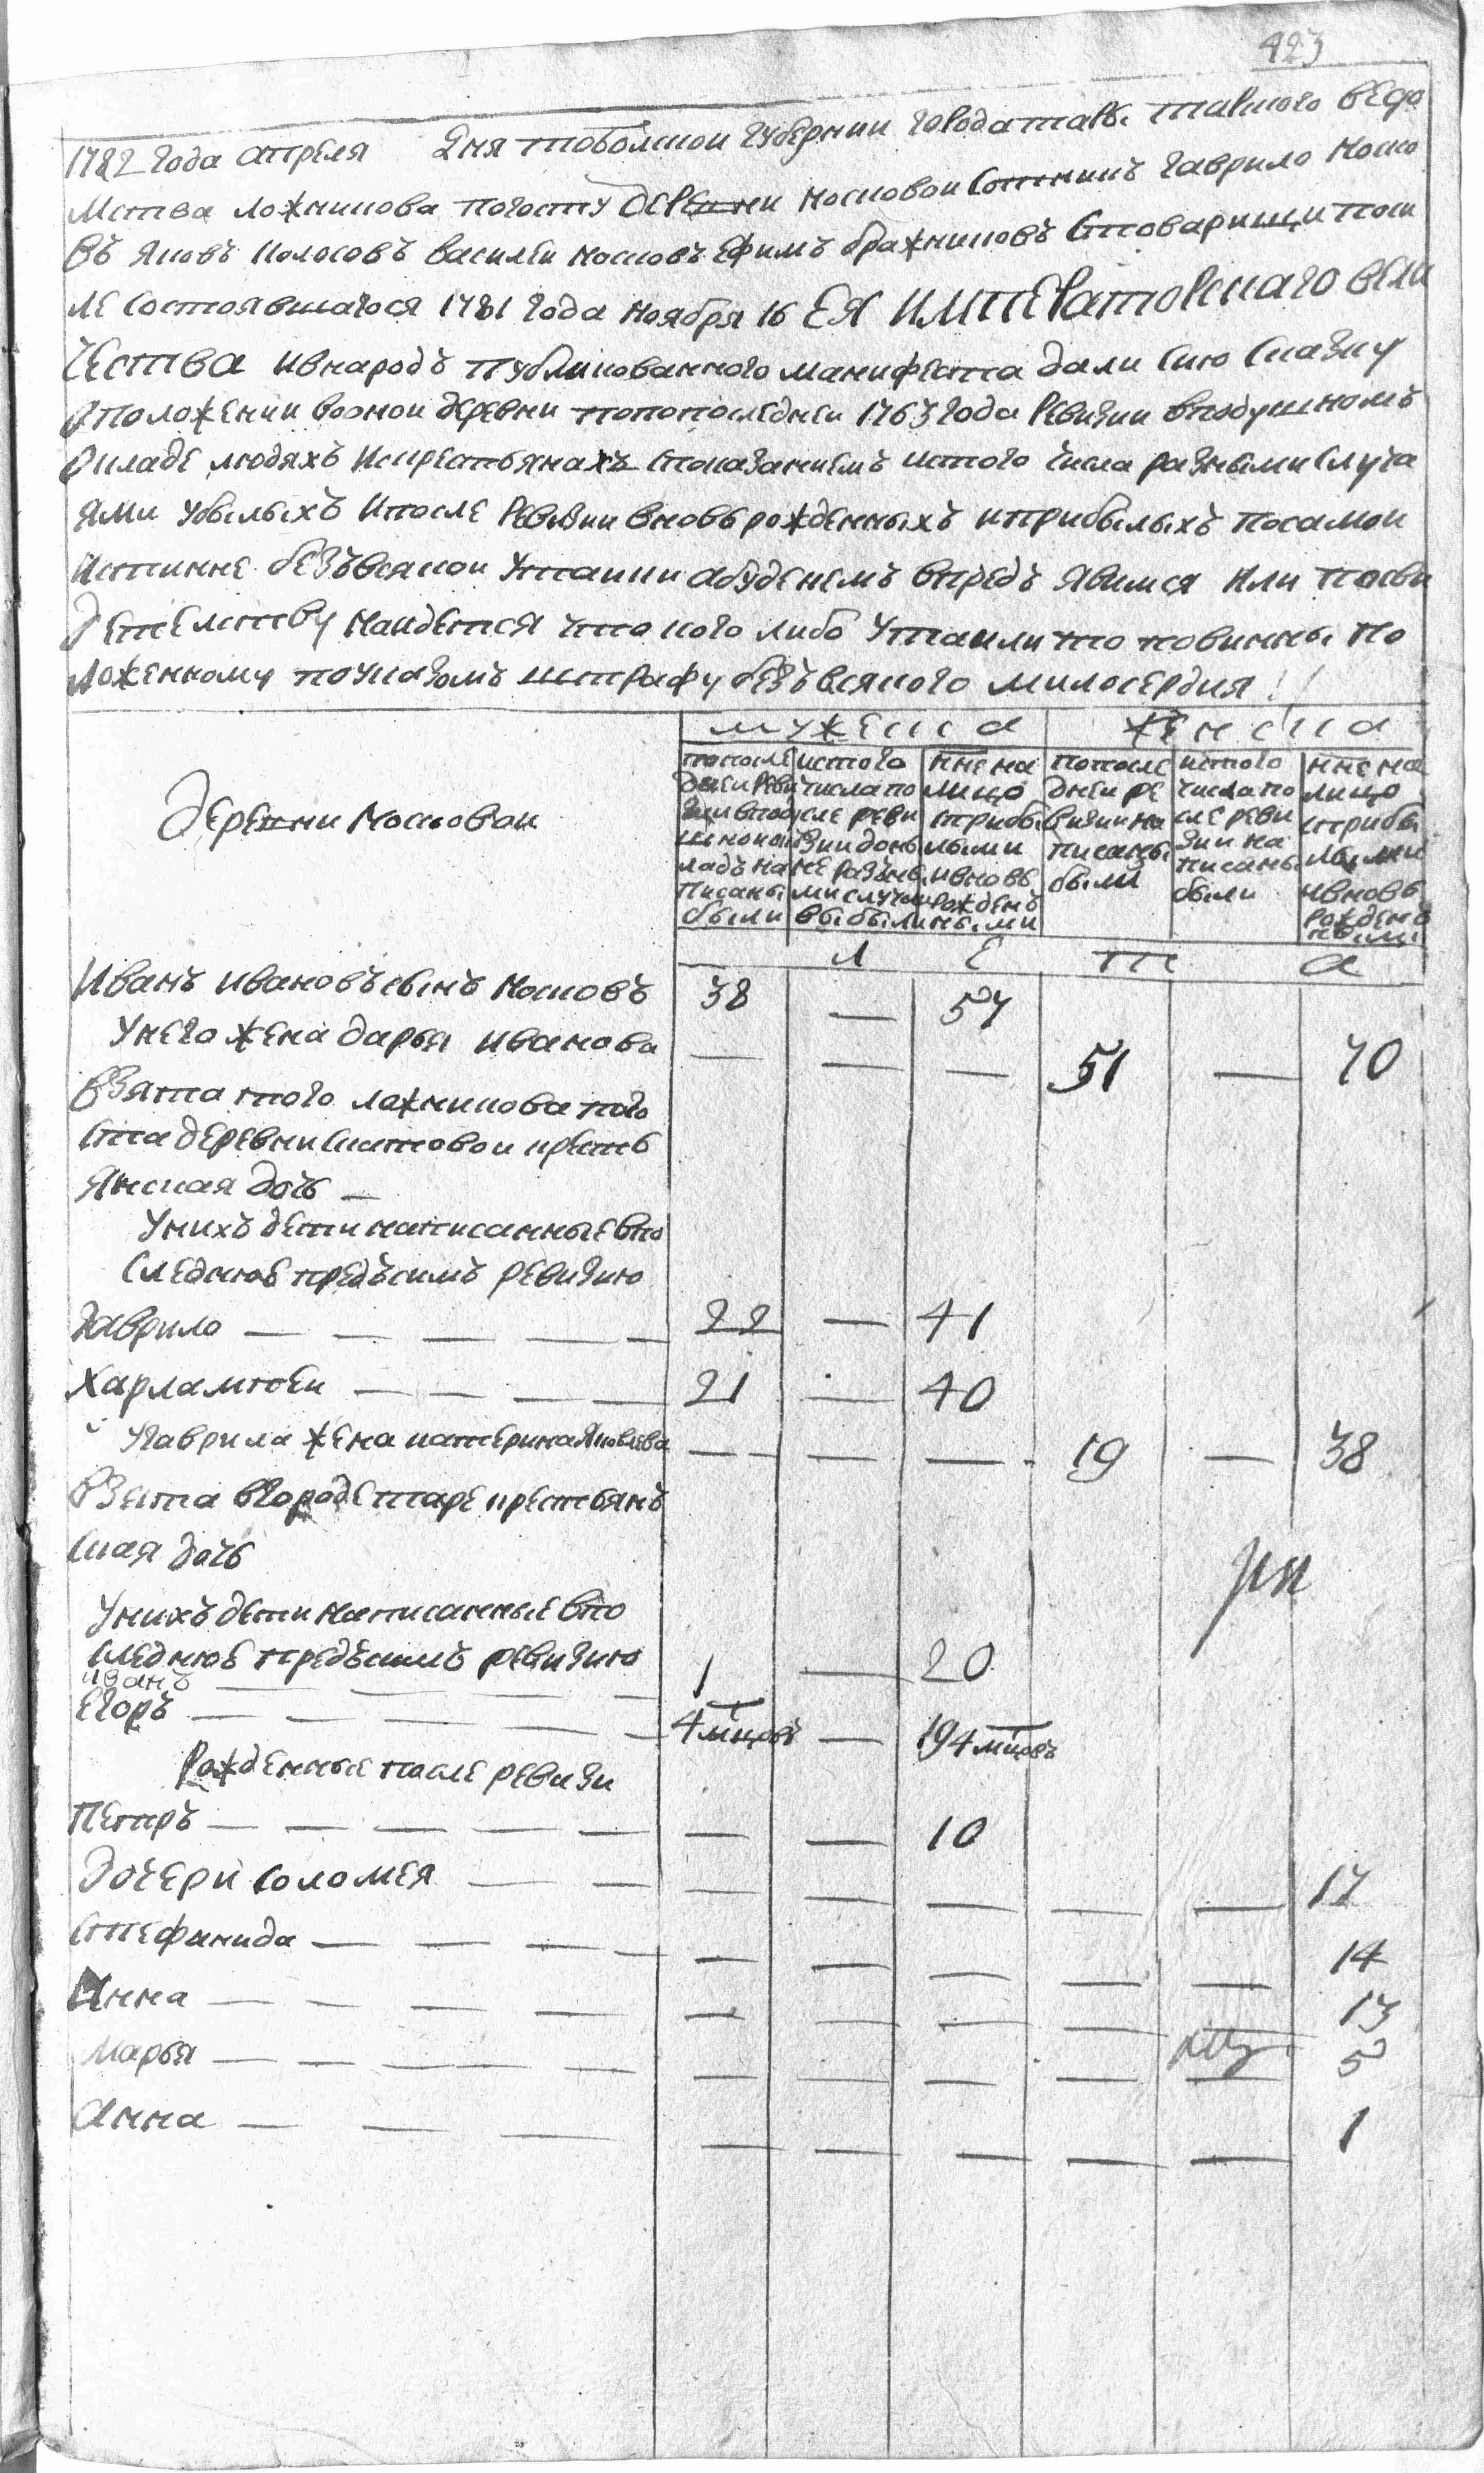 423
1782 года апреля дня тоболской губернии города тары тарского ведо
мства ложникова погосту деревни москово́й сотникъ гаврило моско
въ яковъ колосовъ василеи московъ ефимъ бражниковъ стоварищи поси
ле состоявшагося 1781 года ноября 16 ЕЯ ИМПЕРАТОРСКАГО вели
чества ивнародъ публикованного манифеста дали сию сказку
о положении воной деревни попоследней 1763 года ревизии вподушномъ
окладе людяхъ икрестьянахъ споказаниемъ истого числа разными случа
ями убылыхъ ипосле ревизии вновь рожденныхъ иприбылыхъ посамой
истинне безъвсякой утайки абуденемъ впредь явимся или посви
детелству найдется что кого либо утаили то повинны по
ложенному поуказомъ штрафу безъвсякого милосердия
мужеска женска
Деревни Московой
попосле дней реви зии вподу шной ок ладъ на писаны были
истого числа по сле реви зии донь не разны ми случаи выбыли
нне на лицо сприбы лыми ивновь рожденъ ными
попосле дней ре визии на писаны были
истого числа по сле реви зии на писаны были
нне на лицо сприбы лыми ивновь рожденъ ными
л е т а
Иванъ ивановъ сынъ московъ 38 — 57
Унего жена дарья иванова — — — 51 — 70
взята того ложникова пого
ста деревни скатовой кресть
янская дочь —
Унихъ дети написанные впо
следнюю предъсимъ ревизию
гаврило — — — — — 22 — 41
харлампеи — — — — 21 — 40
Угаврила жена катерина яковлева — — — — 19 — 38
взята вгороде таре крестьянъ
ская дочь
Унихъ дети написанные впо
следнюю предъсимъ ревизию
иванъ — — — — 1 — 20
егоръ — — — — 4 мцовъ — 19 4 мцовъ
Рожденные после ревизи
петръ — — — — — — — 10
Дочери соломея — — — — — — — 17
стефанида — — — — — — — — — 14
Инна — — — — — — — — — 13
марья — — — — — — — — — — 5
анна — — — — — — — — 1